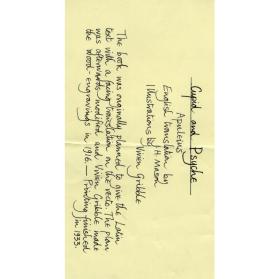 Cupid and Psyche
Apuleius
English translation by
H. Mason
Illustrations by Vivien Gribble
The book was originally planned to give the Latin
text with a facing translation on the recto. The plan
was afterwards modified and Vivien Gribble made
the wood-engravings in 1916 — Printing finished
in 1933.